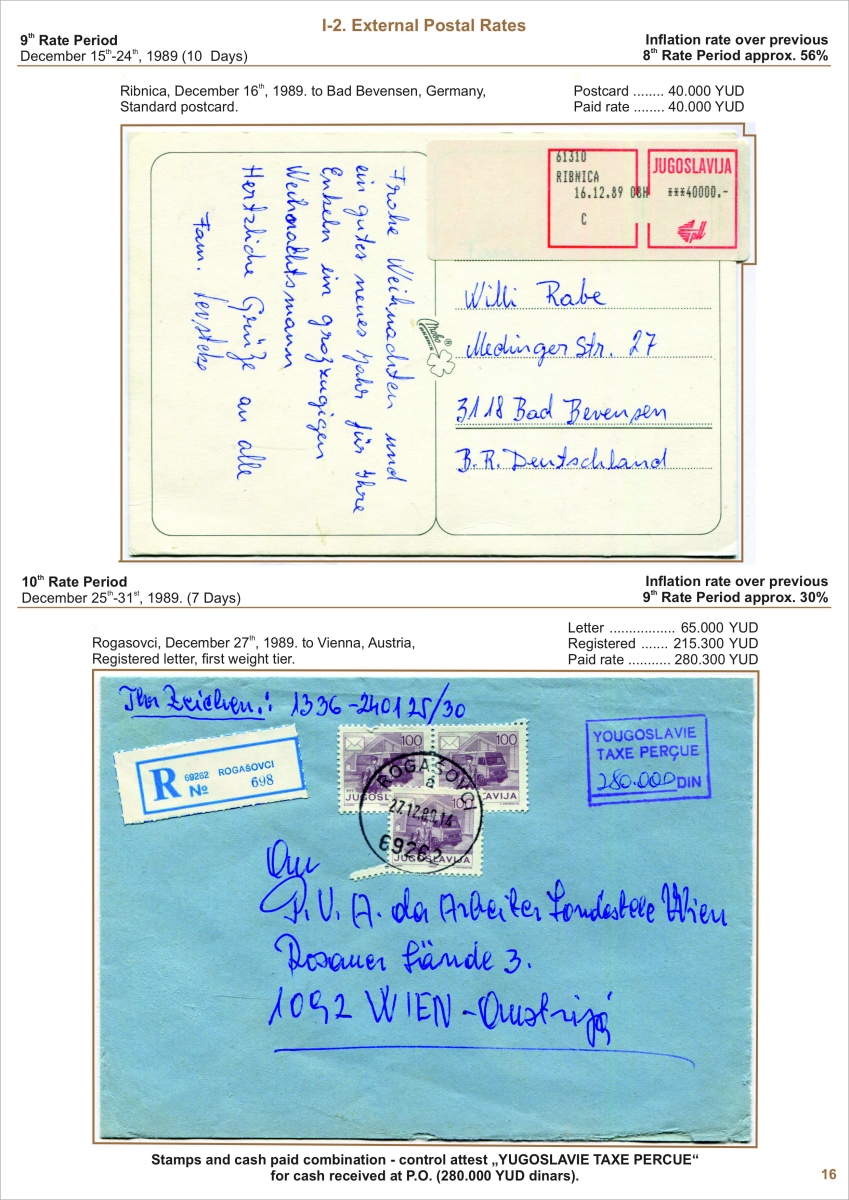 I-2. External Postal Rates
9th Rate Period
December 15th-24th, 1989 (10 Days)
Inflation rate over previous
8th Rate Period approx. 56%
Ribnica, December 16th, 1989. to Bad Bevensen, Germany,
Standard postcard.
Postcard ........ 40.000 YUD
Paid rate ........ 40.000 YUD
Frohe Weihnachten und
ein gutes neues Jahr für Ihre
Enkeln ein großzugigen
Weihnachtsmann
Hertzliche Grüße an alle
Fam.
61310
RIBNICA
16.12.89 08H
C
JUGOSLAVIJA
***40000.-
ptt
Willi Rabe
Medinger Str. 27
3118 Bad Bevensen
B.R. Deutschland
10th Rate Period
December 25th-31st, 1989. (7 Days)
Inflation rate over previous
9th Rate Period approx. 30%
Rogasovci, December 27th, 1989. to Vienna, Austria,
Registered letter, first weight tier.
Letter ................ 65.000 YUD
Registered ....... 215.300 YUD
Paid rate ........... 280.300 YUD
Ihr Zeichen.: 1336-240125/30
R 69262 ROGAŠOVCI
№ 698
100
100
100
JUGOSLAVIJA
ROGAŠOVCI
a
27.12.89.14
69262
YOUGOSLAVIE
TAXE PERÇUE
280.000 DIN
An
P.V.A. der Arbeiter Londestele Wien
Rosauer Lände 3.
1092 WIEN - Austrija
Stamps and cash paid combination - control attest „YUGOSLAVIE TAXE PERCUE“
for cash received at P.O. (280.000 YUD dinars).
16